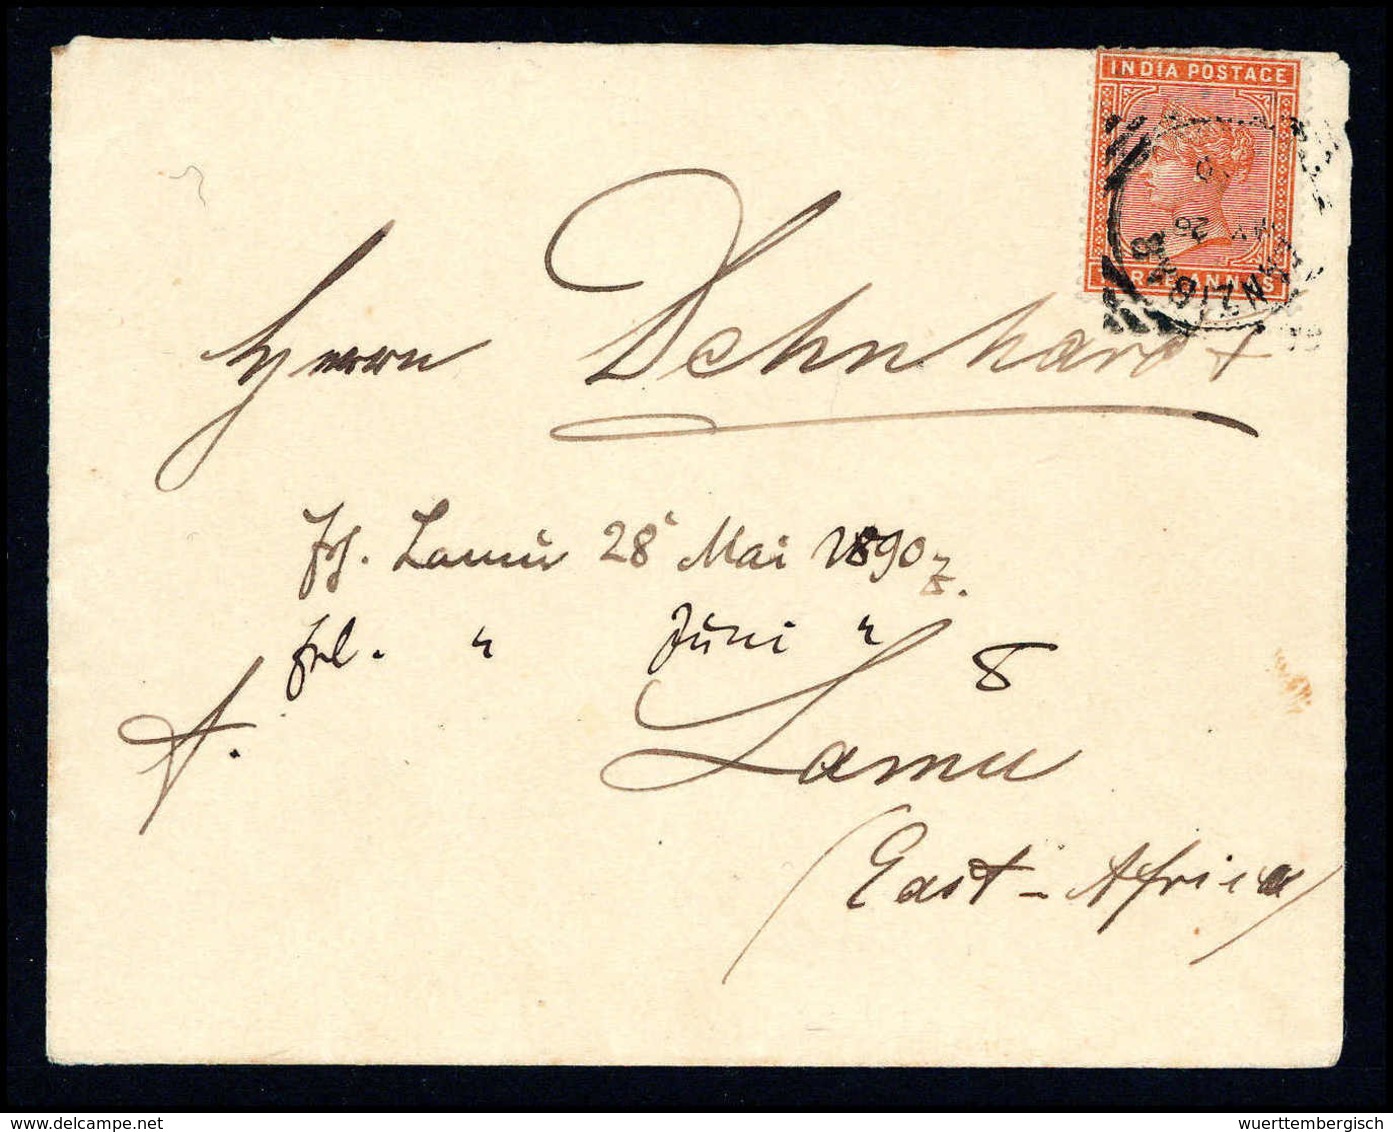 INDIA POSTAGE
THREE ANNAS
ZANZIBAR
MY 26
Herrn Dehnhardt
Lamu 28 Mai 1890
" Juni "
Lamu
(East-Africa)
delcampe.net
wuerttembergisch